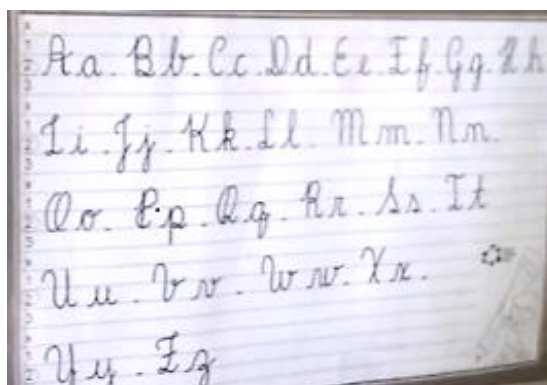 Aa. Bb. Cc. Dd. Ee. Ff. Gg. Hh
Ii. Jj. Kk. Ll. Mm. Nn.
Oo. Pp. Qq. Rr. Ss. Tt
Uu. Vv. Ww. Xx.
Yy. Zz